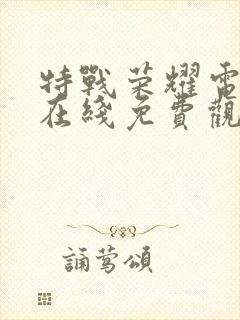 特戰榮耀電
在綫免費觀
誦鶯頌